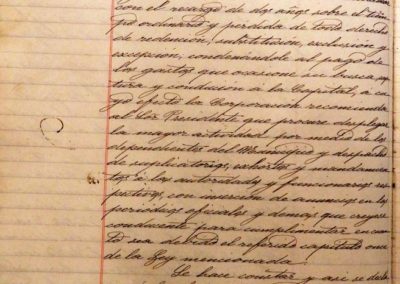 con el recargo de dos años sobre el tiem
po ordinario y pérdida de todo derecho
de redención, substitución, exclusión y
excepción, condenándole al pago de
los gastos que ocasione su busca
tura y conducción a la Capital, a cu
yo efecto la Corporación recomienda
al Sor Presidente que procure desplegar
la mayor actividad por medio de los
dependientes del Municipio y despacho
de suplicatorios, exhortos y mandamien
tos a las autoridades y funcionarios res
pectivos, con inserción de anuncios en los
periódicos oficiales y demas que creyere
conducente para cumplimentar en cuan
to sea debido el referido capitulo once
de la Ley mencionada.
Se hace constar y asi se decla